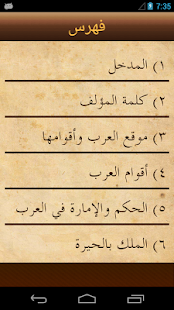 7:35
فهرس
١) المدخل
٢) كلمة المؤلف
٣) موقع العرب وأقوامها
٤) أقوام العرب
٥) الحكم والإمارة في العرب
٦) الملك بالحيرة